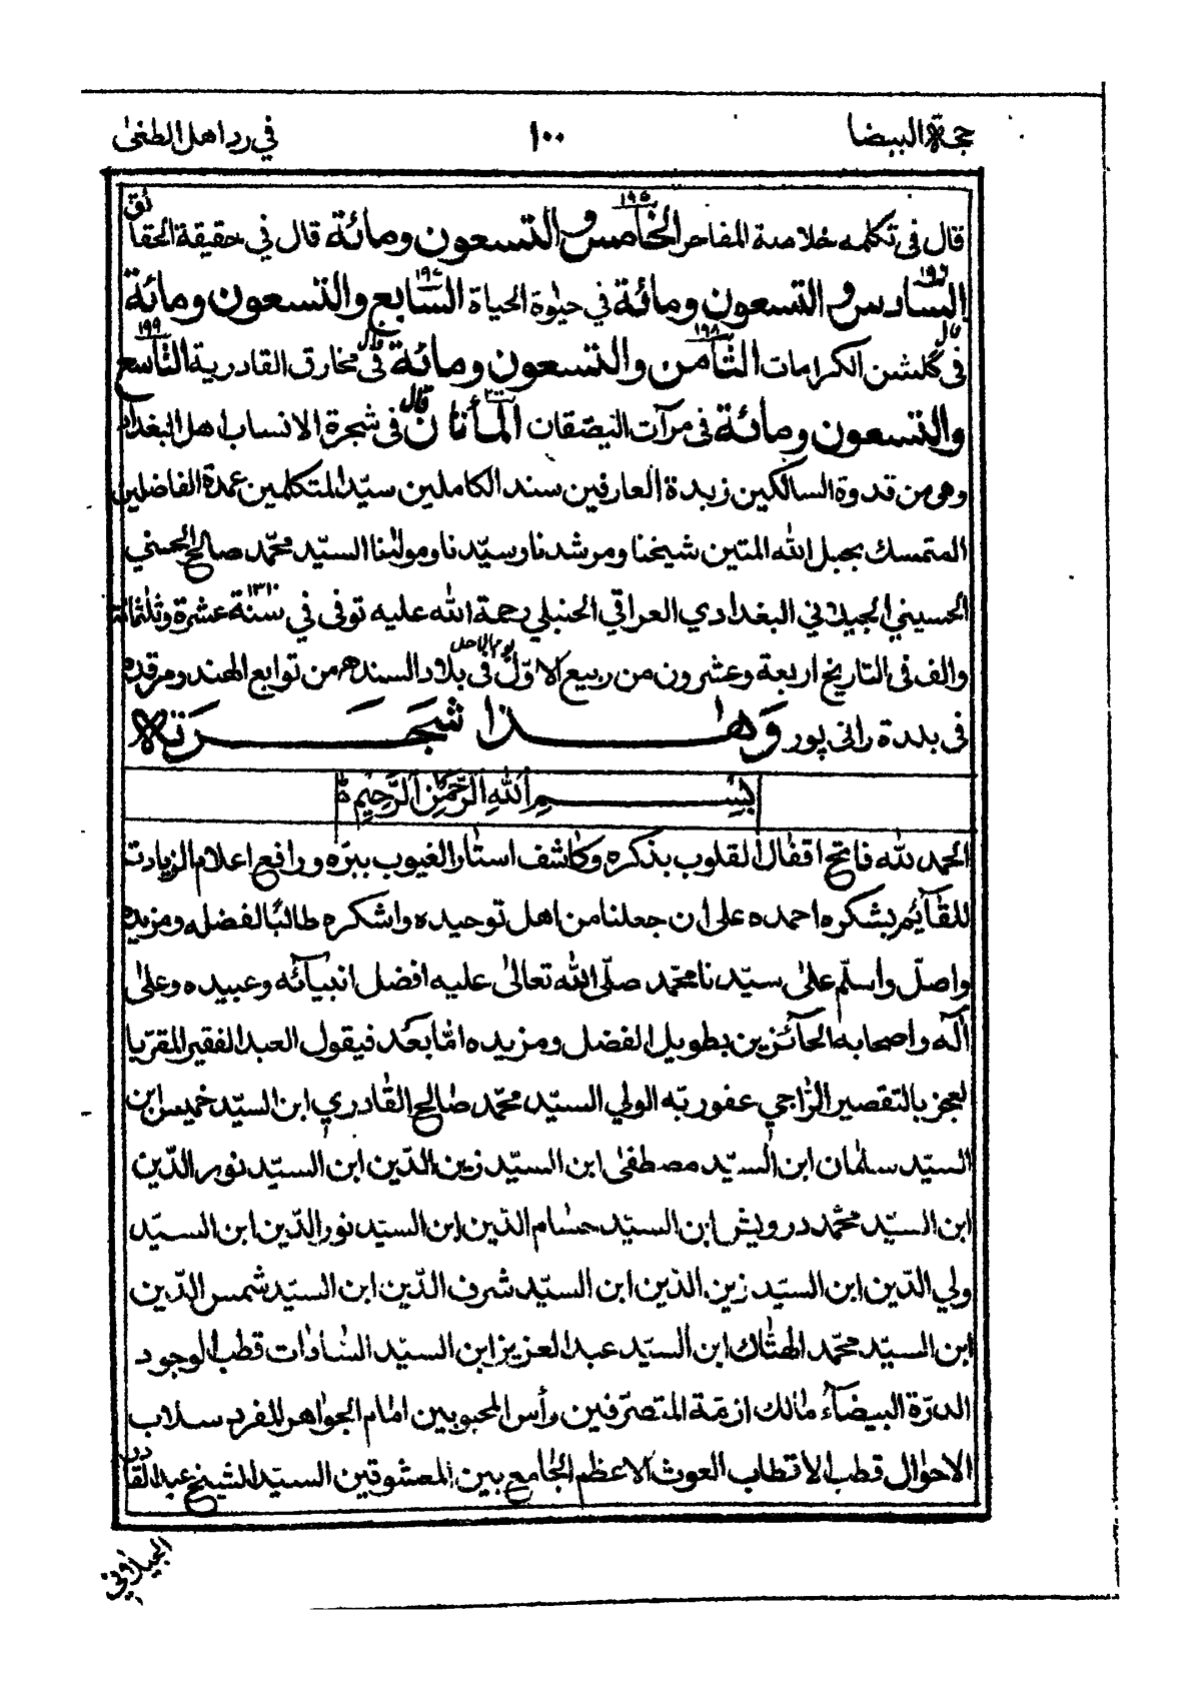 حجة البيضا ١٠٠ في رد اهل الطغىٰ
قال فى تكلمه خلاصة المفاخر الخامس ١٩٥ والتسعون ومائة قال في حقيقة الحقائق
السادس ١٩٦ والتسعون ومائة في حيٰوة الحياة السّابع ١٩٧ والتسعون ومائة قال
فى گلشن الكرامات الثامن ١٩٨ والتسعون ومائة قال فى مخارق القادرية التاسع ١٩٩
والتسعون ومائة فى مرآت المأتان ٢٠٠ قال فى شجرة الانساب اهل البغداد
وهو من قدوة السالكين زبدة العارفين سند الكاملين سيّد المتكلمين عمدة الفاضلين
المتمسك بحبل الله المتين شيخنا ومرشدنا وسيّدنا ومولٰنا السيّد محمّد صالح الحسني
الحسيني الجيلاني البغدادي العراقي الحنبلي رحمة الله عليه توفى في سنة ١٣١٠ عشرة وثلٰثمائة
والف فى التاريخ اربعة وعشرون من ربيع الاوّل يوم الاحد فى بلاد السندھ من توابع الهند ومرقده
فى بلدة رانى پور وَهٰذا شَجَرَتهٗ
بِسْمِ اللهِ الرَّحْمٰنِ الرَّحِيْمِ
الحمد لله فاتح اقفال القلوب بذكره وكاشف استار الغيوب ببرّه ورافع اعلام الزيادت
للقآئم بشكره احمده على ان جعلنا من اهل توحيده واشكره طالبًا لفضله ومزيده
واصلّ واُسلّم علىٰ سيّدنا محمّد صلّى الله تعالىٰ عليه افضل انبيآئه وعبيده وعلىٰ
آله واصحابه الحآئزين بطويل الفضل ومزيده امّا بعد فيقول العبد الفقير المقرّ با
لعجز بالتقصير الرّاجي عفو ربّه الولي السيّد محمّد صٰالح القٰادري ابن السيّد خميس ابن
السيّد سلمان ابن السيّد مصطفىٰ ابن السيّد زين الدّين ابن السيّد نور الدّين
ابن السيّد محمّد درويش ابن السيّد حسام الدّين ابن السيّد نور الدّين ابن السيّد
ولي الدّين ابن السيّد زين الدّين ابن السيّد شرف الدّين ابن السيّد شمس الدّين
ابن السيّد محمّد الهتّاك ابن السيّد عبد العزيز ابن السيّد السّادات قطب الوجود
الدرّة البيضآء مٰالك ازمّة المتصرّفين رأس المحبوبين امٰام الجواهر المفرد سلاب
الاحوال قطب الاقطاب الغوث الاعظم الجٰامع بين المعشوقين السيّد الشيخ عبد القادر
الجيلاني